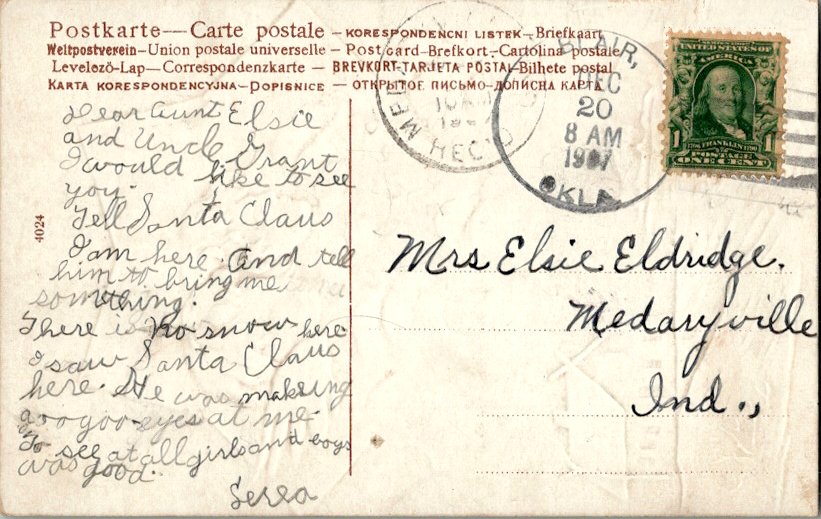 Postkarte — Carte postale – KORESPONDENCNI LISTEK – Briefkaart
Weltpostverein – Union postale universelle – Post card - Brefkort - Cartolina postale
Levelezö-Lap — Correspondenzkarte – BREVKORT - TARJETA POSTAL - Bilhete postal
KARTA KORESPONDENCYJNA – DOPISNICE – ОТКРЫТОЕ ПИСЬМО - ДОПИСНА КАРТА
BLAIR,
DEC
20
8 AM
1907
OKLA
REC'D
UNITED STATES OF
AMERICA
1
1706 FRANKLIN 1790
POSTAGE
ONE CENT
4024
Dear Aunt Elsie
and Uncle Grant
I would like to see
you.
Tell Santa Claus
I am here. And tell
him to bring me
something.
There is no snow here
I saw Santa Claus
here. He was making
goo-goo-eyes at me.
To see at all girls and boys
was good.
Mrs Elsie Eldridge.
Medaryville
Ind.,